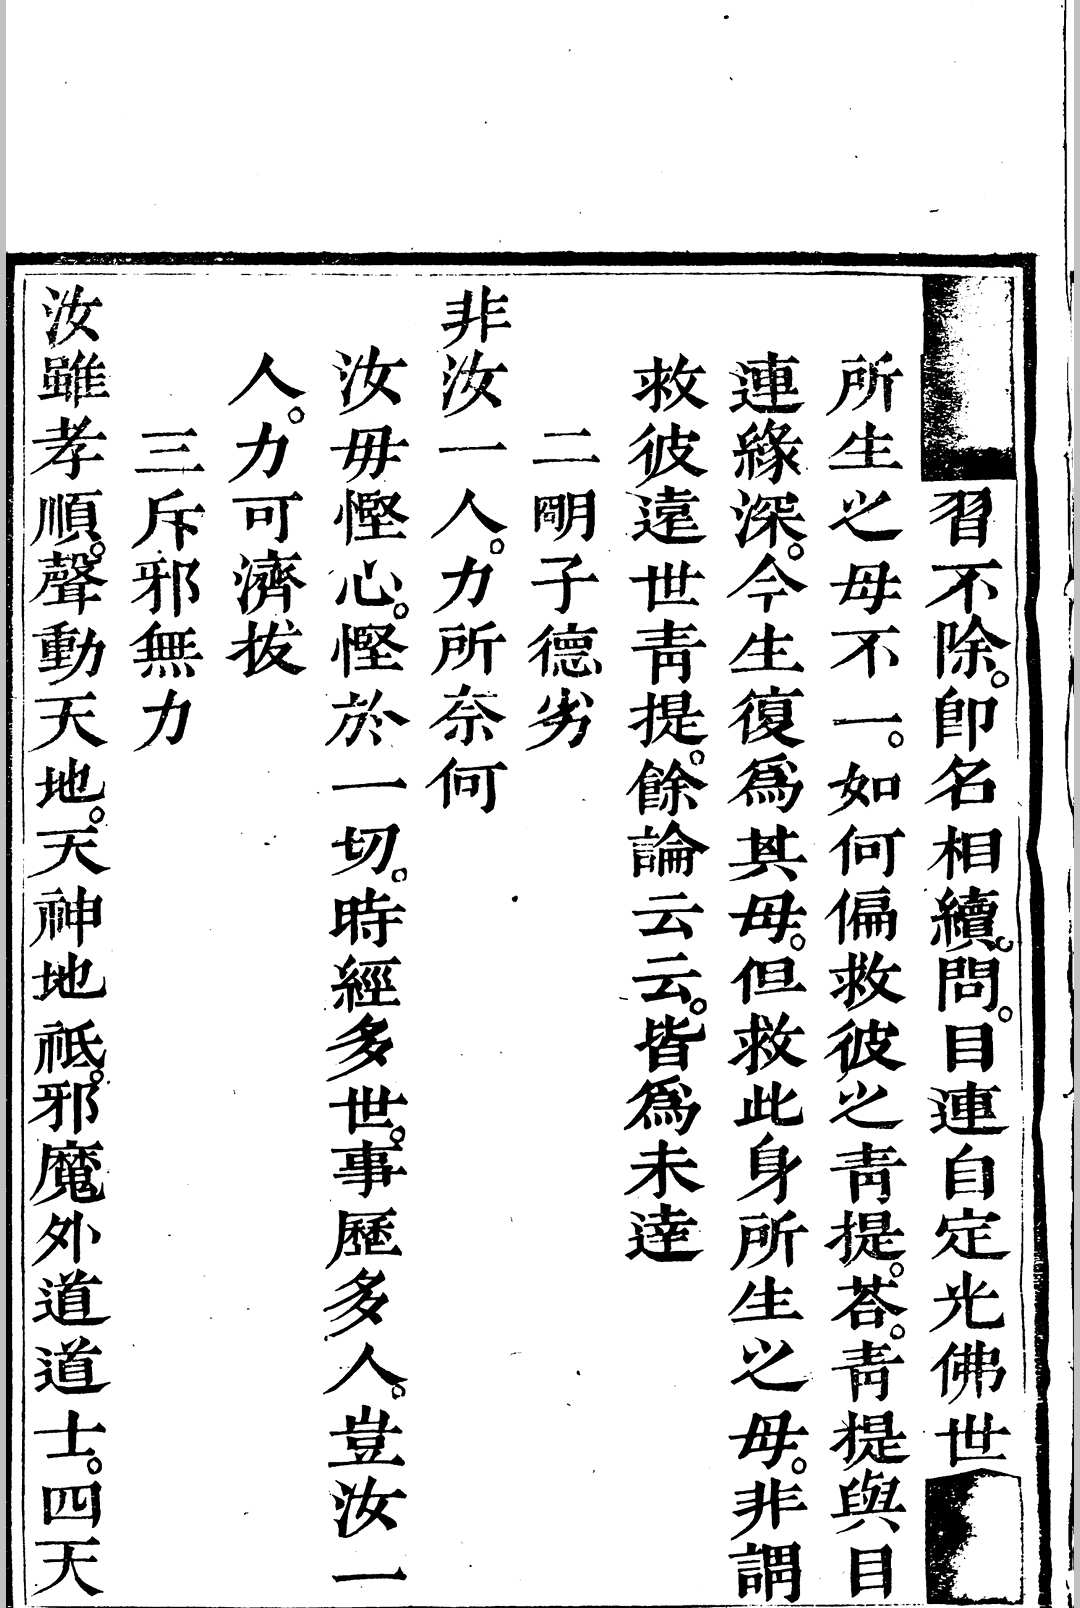 習不除。卽名相續。問。目連自定光佛世
所生之母不一。如何偏救彼之靑提。荅。靑提與目
連緣深。今生復爲其母。但救此身所生之母。非謂
救彼遠世靑提。餘論云云。皆爲未達
二明子德劣
非汝一人。力所奈何
汝毋慳心。慳於一切。時經多世。事歷多人。豈汝一
人。力可濟拔
三斥邪無力
汝雖孝順。聲動天地。天神地祇。邪魔外道道士。四天